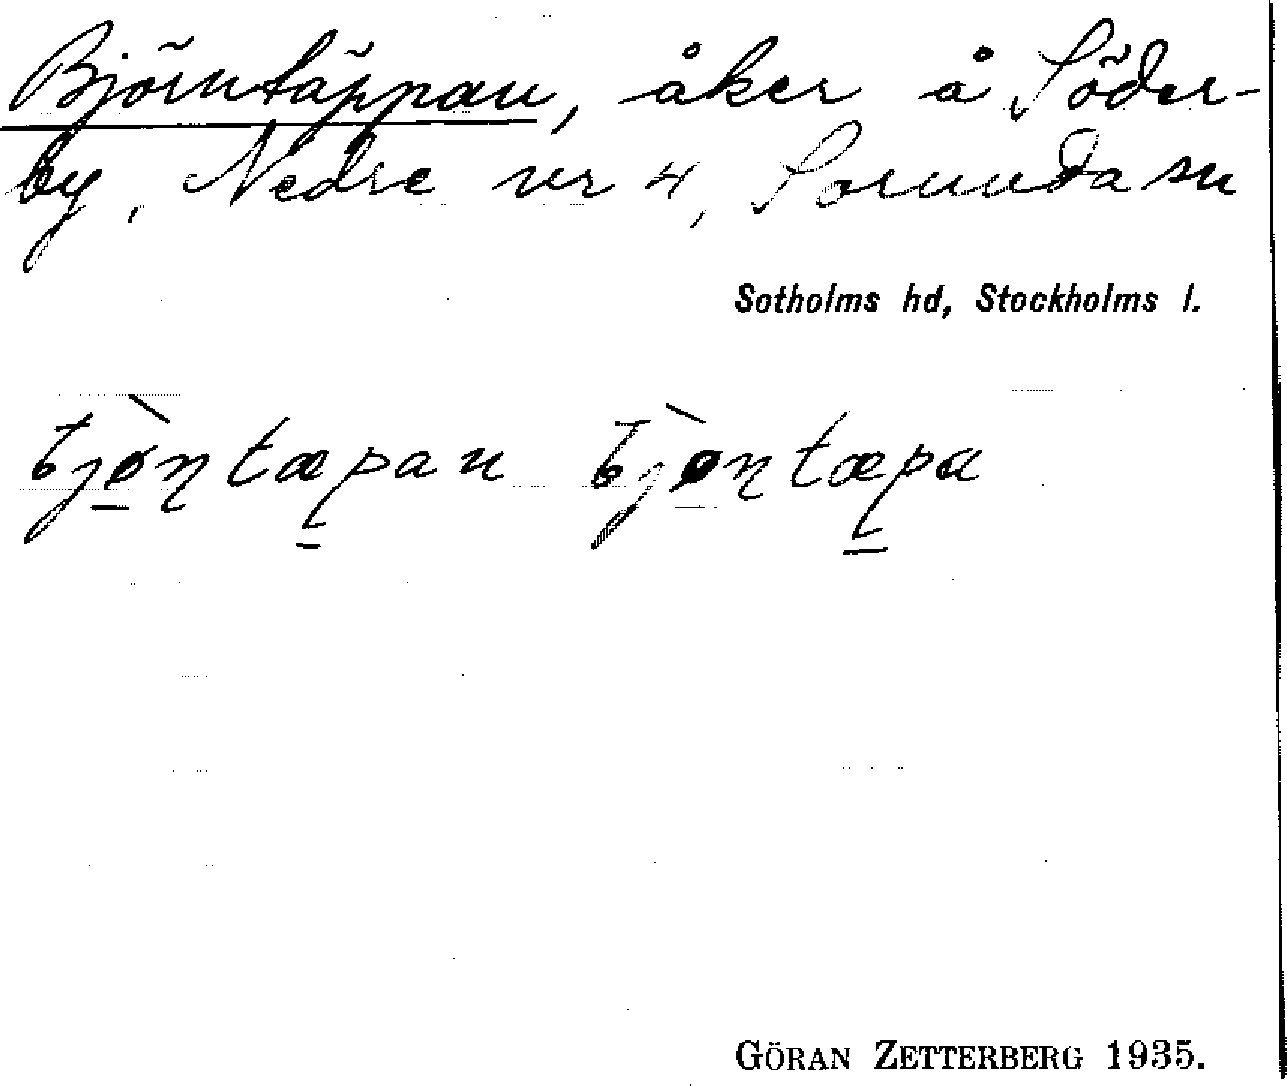 Björntäppan, åker å Söder-
by, Nedre nr 4, Sorunda sn
Sotholms hd, Stockholms l.
bjø̀ṇtæpan bjø̀ṇtæpa
GÖRAN ZETTERBERG 1935.